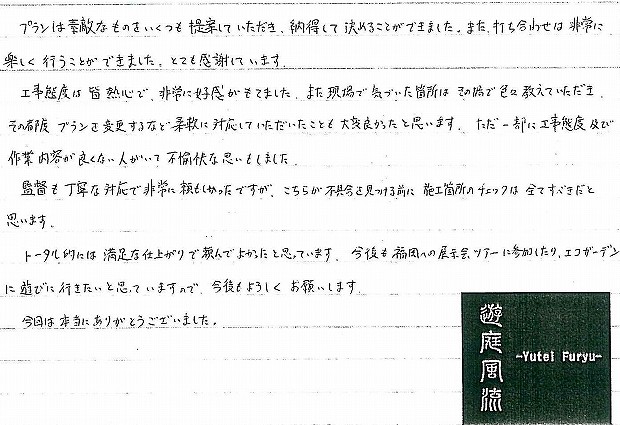 プランは素敵なものをいくつも提案していただき、納得して決めることができました。また、打ち合わせは非常に
楽しく行うことができました。とても感謝しています。
工事態度は皆熱心で、非常に好感がもてました。また現場で気づいた箇所はその場で色々教えていただき、
その都度プランを変更するなど柔軟に対応していただいたことも大変良かったと思います。ただ一部に工事態度及び
作業内容が良くない人がいて不愉快な思いもしました。
監督も丁寧な対応で非常に頼もしかったですが、こちらが不具合を見つける前に施工箇所のチェックは全てすべきだと
思います。
トータル的には満足な仕上がりで頼んでよかったと思っています。今後も福岡への展示会ツアーに参加したり、エコガーデン
に遊びに行きたいと思っていますので、今後もよろしくお願いします。
今回は本当にありがとうございました。
遊庭風流
-Yutei Furyu-